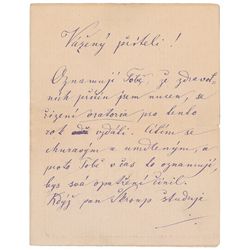 Vážený příteli!
Oznamuji Tobě, že zdravot-
ních příčin jsem nucen, se
řízení oratoria pro tento
rok vzdáti. Cítím se
churavým a umdleným, a
proto Tobě v čas to oznamuji,
bys svá opatření činil.
Když pan Skroup studuje